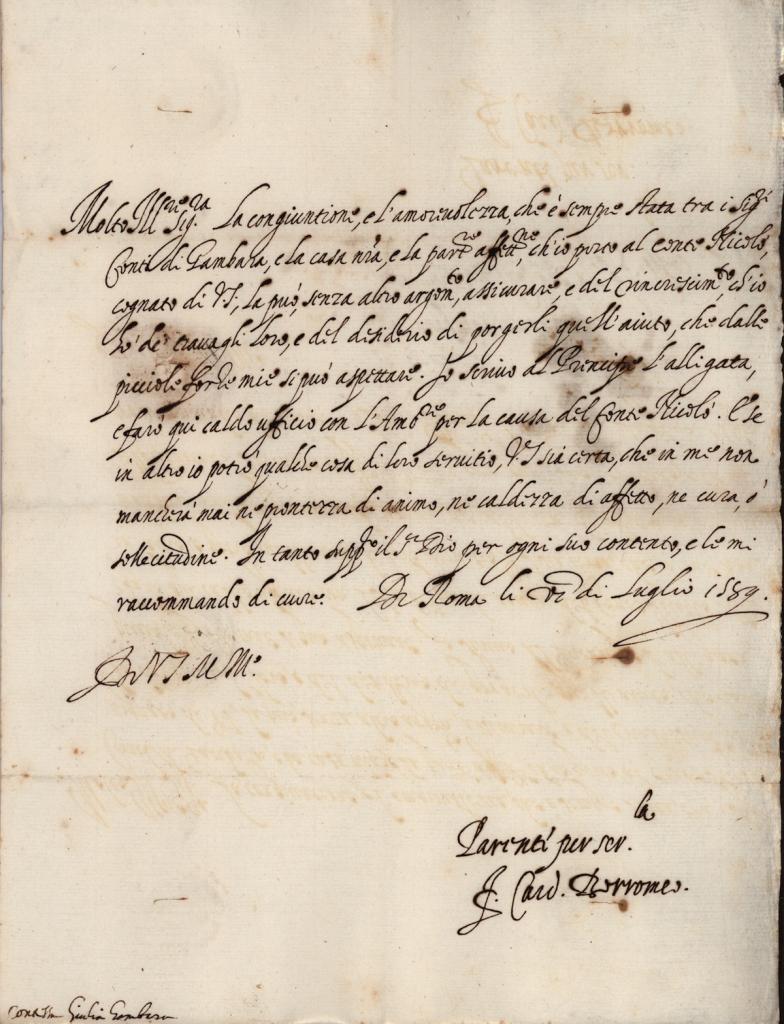 Molto Ill.re Sig.ra La congiuntione, e l'amorevolezza, che è sempre stata tra i Sig.ri
Conti di Gambara, e la casa n̄ra, e la par.re affett.ne, ch'io porto al Conte Nicolò,
cognato di V.S., la può, senza altro argom.to, assicurare, e del rincrescim.to, ch'io
hò de' travagli loro, e del desiderio di porgerli quell'aiuto, che dalle
picciole forze mie si può aspettare. Io scrivo al Prencipe l'alligata,
e farò qui caldo ufficio con l'Amb.re per la causa del Conte Nicolò. E se
in altro io potrò qualche cosa di loro servitio, V.S. sia certa, che in me non
mancherà mai ne prontezza di animo, ne caldezza di affetto, ne cura, ò
sollecitudine. In tanto supp.co il S.r Dio per ogni suo contento, e le mi
raccommando di cuore. Di Roma li di Luglio 1589.
Di V.S. M.
Parente per ser.la
F. Card. Borromeo.
Contessa Giulia Gambara